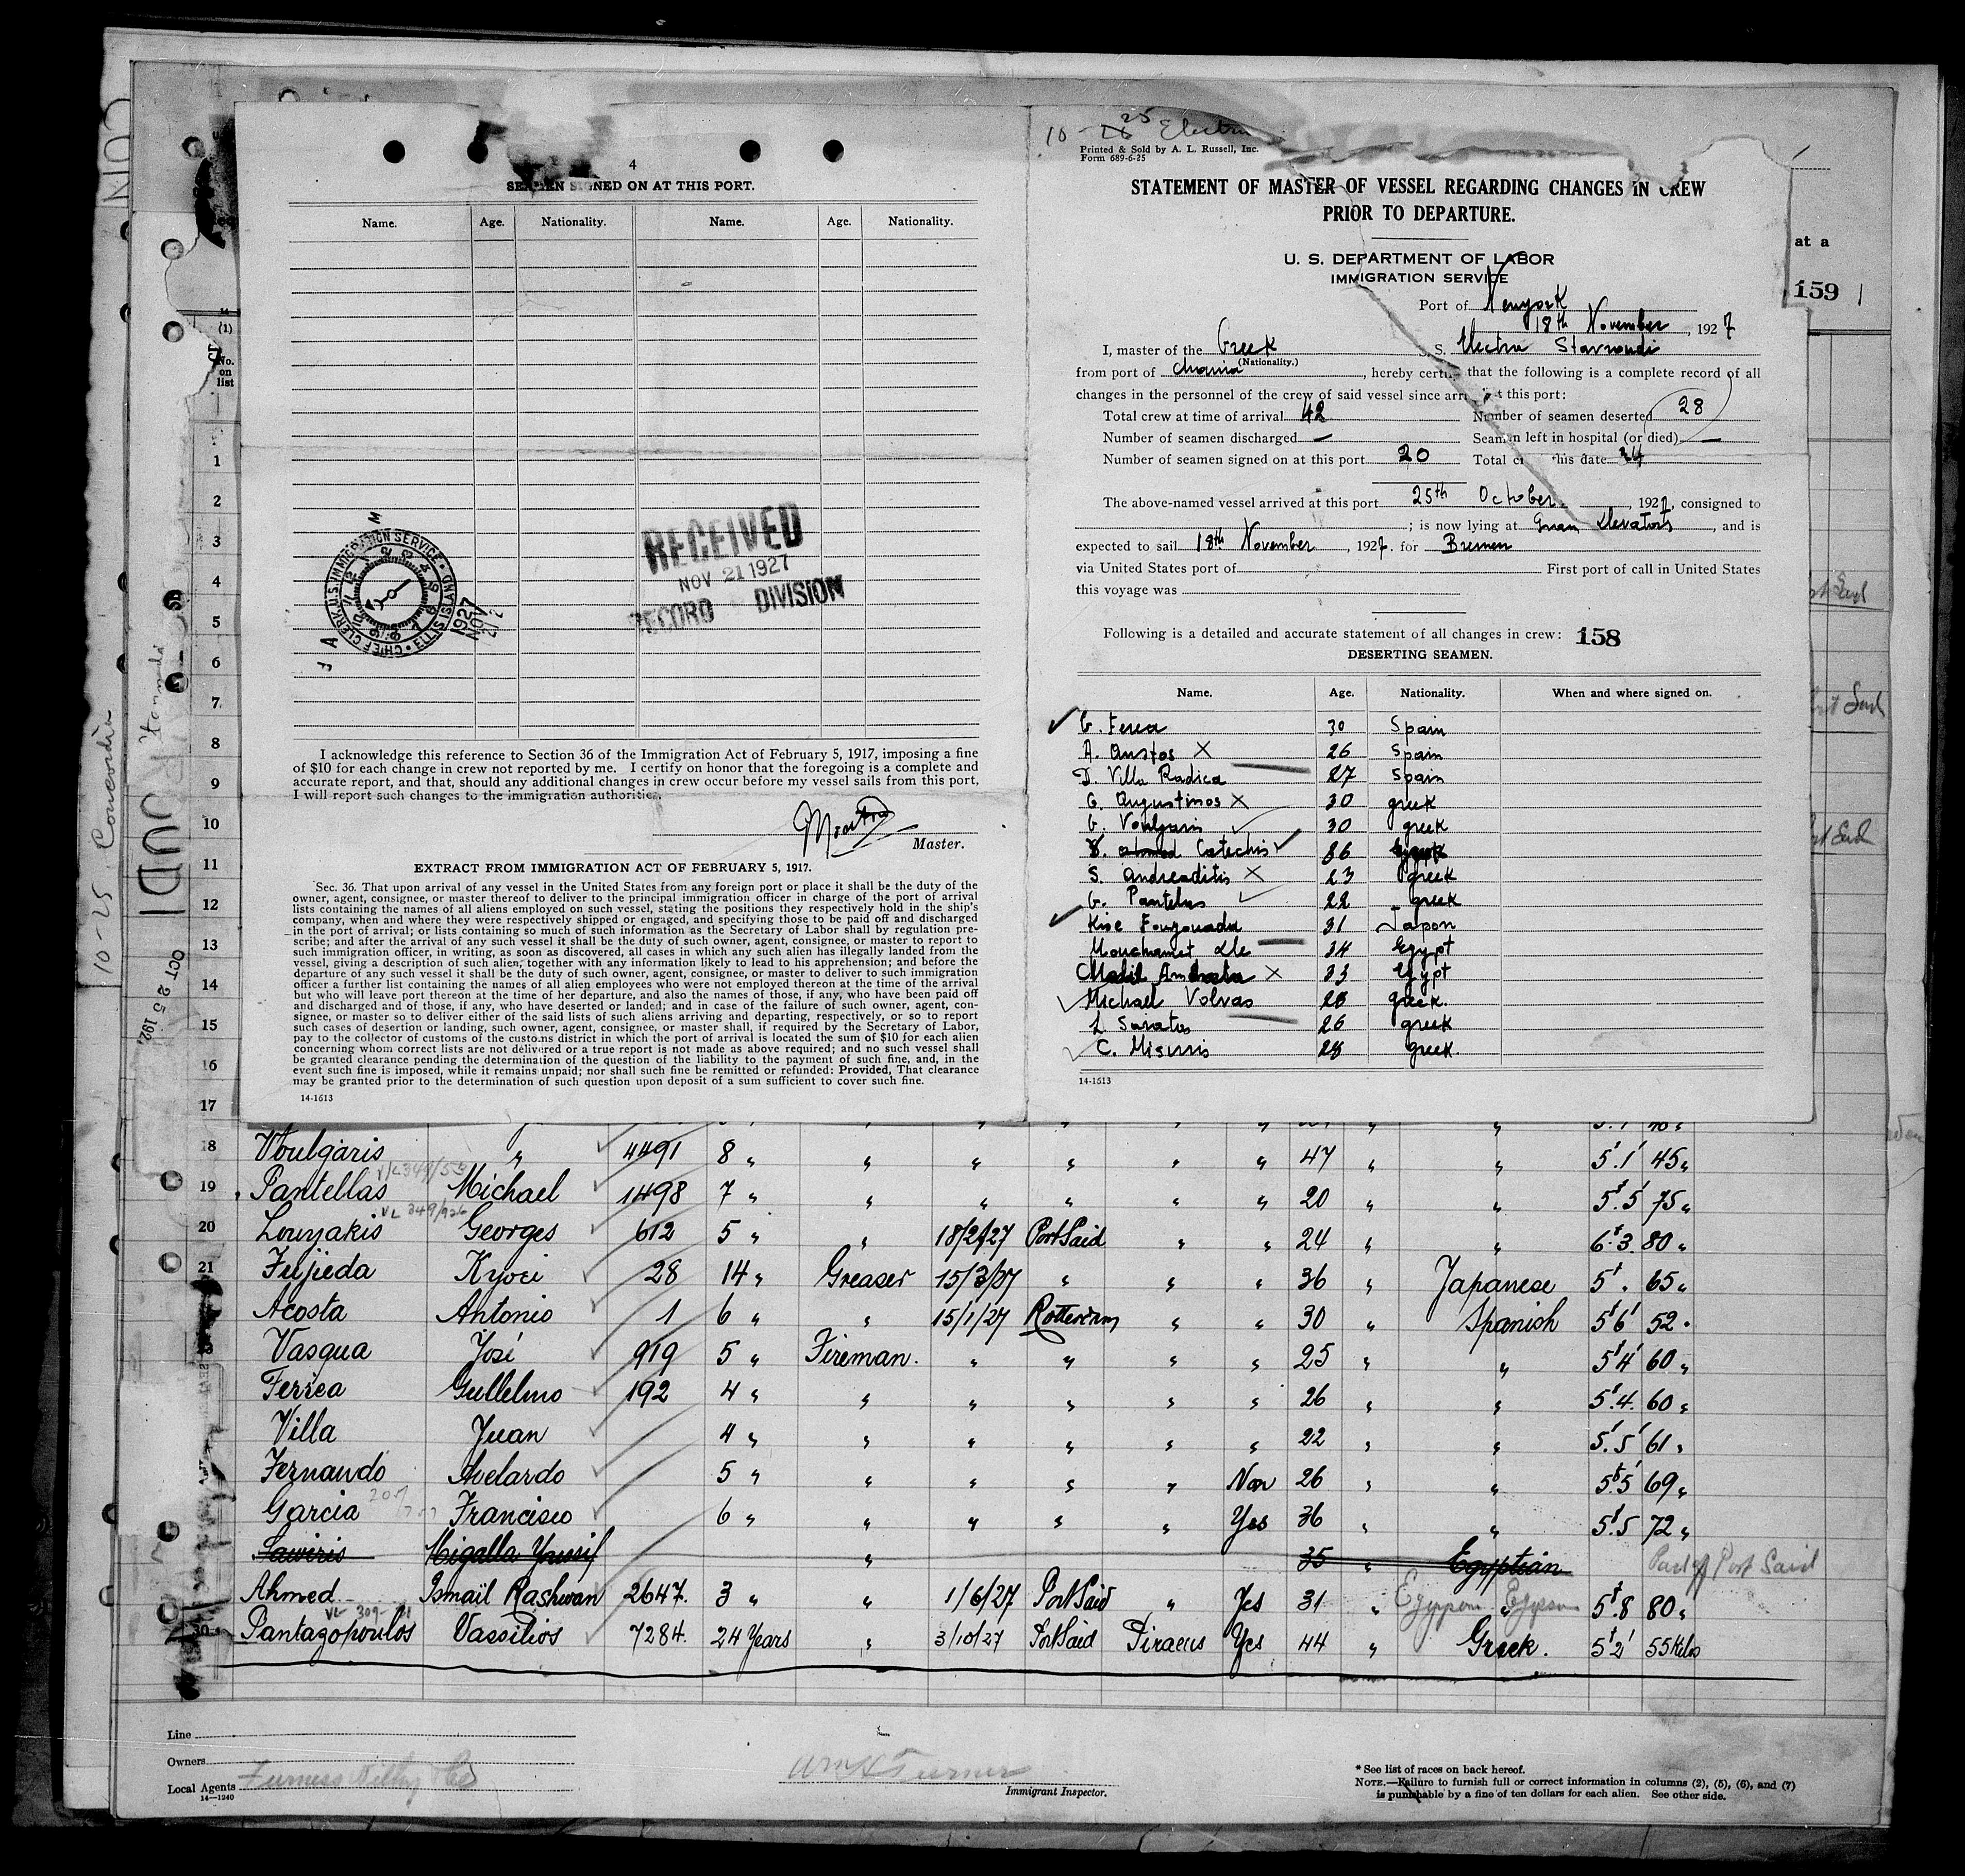 4
SEAMEN SIGNED ON AT THIS PORT.
Name. Age. Nationality. Name. Age. Nationality.
U.S. IMMIGRATION SERVICE
CHIEF CLERK ELLIS ISLAND
1927 NOV
RECEIVED
NOV 21 1927
RECORD DIVISION
I acknowledge this reference to Section 36 of the Immigration Act of February 5, 1917, imposing a fine
of $10 for each change in crew not reported by me. I certify on honor that the foregoing is a complete and
accurate report, and that, should any additional changes in crew occur before my vessel sails from this port,
I will report such changes to the immigration authorities.
Master.
EXTRACT FROM IMMIGRATION ACT OF FEBRUARY 5, 1917.
Sec. 36. That upon arrival of any vessel in the United States from any foreign port or place it shall be the duty of the
owner, agent, consignee, or master thereof to deliver to the principal immigration officer in charge of the port of arrival
lists containing the names of all aliens employed on such vessel, stating the positions they respectively hold in the ship's
company, when and where they were respectively shipped or engaged, and specifying those to be paid off and discharged
in the port of arrival; or lists containing so much of such information as the Secretary of Labor shall by regulation pre-
scribe; and after the arrival of any such vessel it shall be the duty of such owner, agent, consignee, or master to report to
such immigration officer, in writing, as soon as discovered, all cases in which any such alien has illegally landed from the
vessel, giving a description of such alien, together with any information likely to lead to his apprehension; and before the
departure of any such vessel it shall be the duty of such owner, agent, consignee, or master to deliver to such immigration
officer a further list containing the names of all alien employees who were not employed thereon at the time of the arrival
but who will leave port thereon at the time of her departure, and also the names of those, if any, who have been paid off
and discharged and of those, if any, who have deserted or landed; and in case of the failure of such owner, agent, con-
signee, or master so to deliver either of the said lists of such aliens arriving and departing, respectively, or so to report
such cases of desertion or landing, such owner, agent, consignee, or master shall, if required by the Secretary of Labor,
pay to the collector of customs of the customs district in which the port of arrival is located the sum of $10 for each alien
concerning whom correct lists are not delivered or a true report is not made as above required; and no such vessel shall
be granted clearance pending the determination of the question of the liability to the payment of such fine, and, in the
event such fine is imposed, while it remains unpaid; nor shall such fine be remitted or refunded: Provided, That clearance
may be granted prior to the determination of such question upon deposit of a sum sufficient to cover such fine.
14-1613
10 - 25
Printed & Sold by A. L. Russell, Inc.
Form 689-6-25
STATEMENT OF MASTER OF VESSEL REGARDING CHANGES IN CREW
PRIOR TO DEPARTURE.
U. S. DEPARTMENT OF LABOR
IMMIGRATION SERVICE
Port of Newyork
18th November, 1927
I, master of the Greek S. S. Electra Stavroudi
(Nationality.)
from port of Chania, hereby certify that the following is a complete record of all
changes in the personnel of the crew of said vessel since arr at this port:
Total crew at time of arrival 42 Number of seamen deserted 28
Number of seamen discharged — Seamen left in hospital (or died) —
Number of seamen signed on at this port 20 Total cr this date 34
The above-named vessel arrived at this port 25th October, 1927, consigned to
; is now lying at Elevators, and is
expected to sail 18th November, 1927. for Bremen
via United States port of First port of call in United States
this voyage was
Following is a detailed and accurate statement of all changes in crew: 158
DESERTING SEAMEN.
Name. Age. Nationality. When and where signed on.
G. Ferea 30 Spain
A. X 26 Spain
Villa Radica 27 Spain
G. Augustinos X 30 greek
G. Voulgaris 30 greek
Catechis
S. Andreaditis X 23 greek
G. Pantelas 22 greek
31 Japon
Mouchamet 34 Egypt
X 33 Egypt
Michael Volvas 28 greek.
26 greek
C. Misuris 28 greek.
14-1613
at a
159
(1)
No.
on
list
1
2
3
4
5
6
7
8
9
10
11
12
13
14
15
16
17
10-25 Concordia
OCT 25 192
18 Voulgaris " 4491 8 " " " " " " 47 " " 5'.1' 45 "
19 Pantellas Michael 1498 7 " " " " " " 20 " " 5'.5' 75 "
20 Louyakis Georges 612 5 " " 18/2/27 PortSaid " " 24 " " 6'.3 80 "
21 Fujieda Kyoei 28 14 " Greaser 15/3/27 " " " 36 " Japanese 5' . 65 "
Acosta Antonio 1 6 " " 15/1/27 Rotterdam " " 30 " Spanish 5'6' 52 "
Vasqua José 919 5 " Fireman. " " " " 25 " " 5'4' 60 "
Ferrea Gullelmo 192 4 " " " " " " 26 " " 5'.4. 60 "
Villa Juan 4 " " " " " " 22 " " 5'.5' 61 "
Fernando Avelardo 5 " " " " " Non 26 " 5'5' 69 "
Garcia Francisco 6 " " " " " Yes 36 " " 5'.5 72 "
Sawiris Migalla Yussif " 35 " Egyptian Port Said
Ahmed Ismaïl Rashwan 2647. 3 " " 1/6/27 PortSaid " Yes 31 " " 5'.8 80 "
30 Pantazopoulos Vassilios 7284. 24 Years " 3/10/27 PortSaid Piraeus Yes 44 " Greek. 5'2' 55 kilos
Line
Owners
Local Agents Furness Withy
14—1240
Wm H Turner
Immigrant Inspector.
* See list of races on back hereof.
NOTE.—Failure to furnish full or correct information in columns (2), (5), (6), and (7)
is punishable by a fine of ten dollars for each alien. See other side.